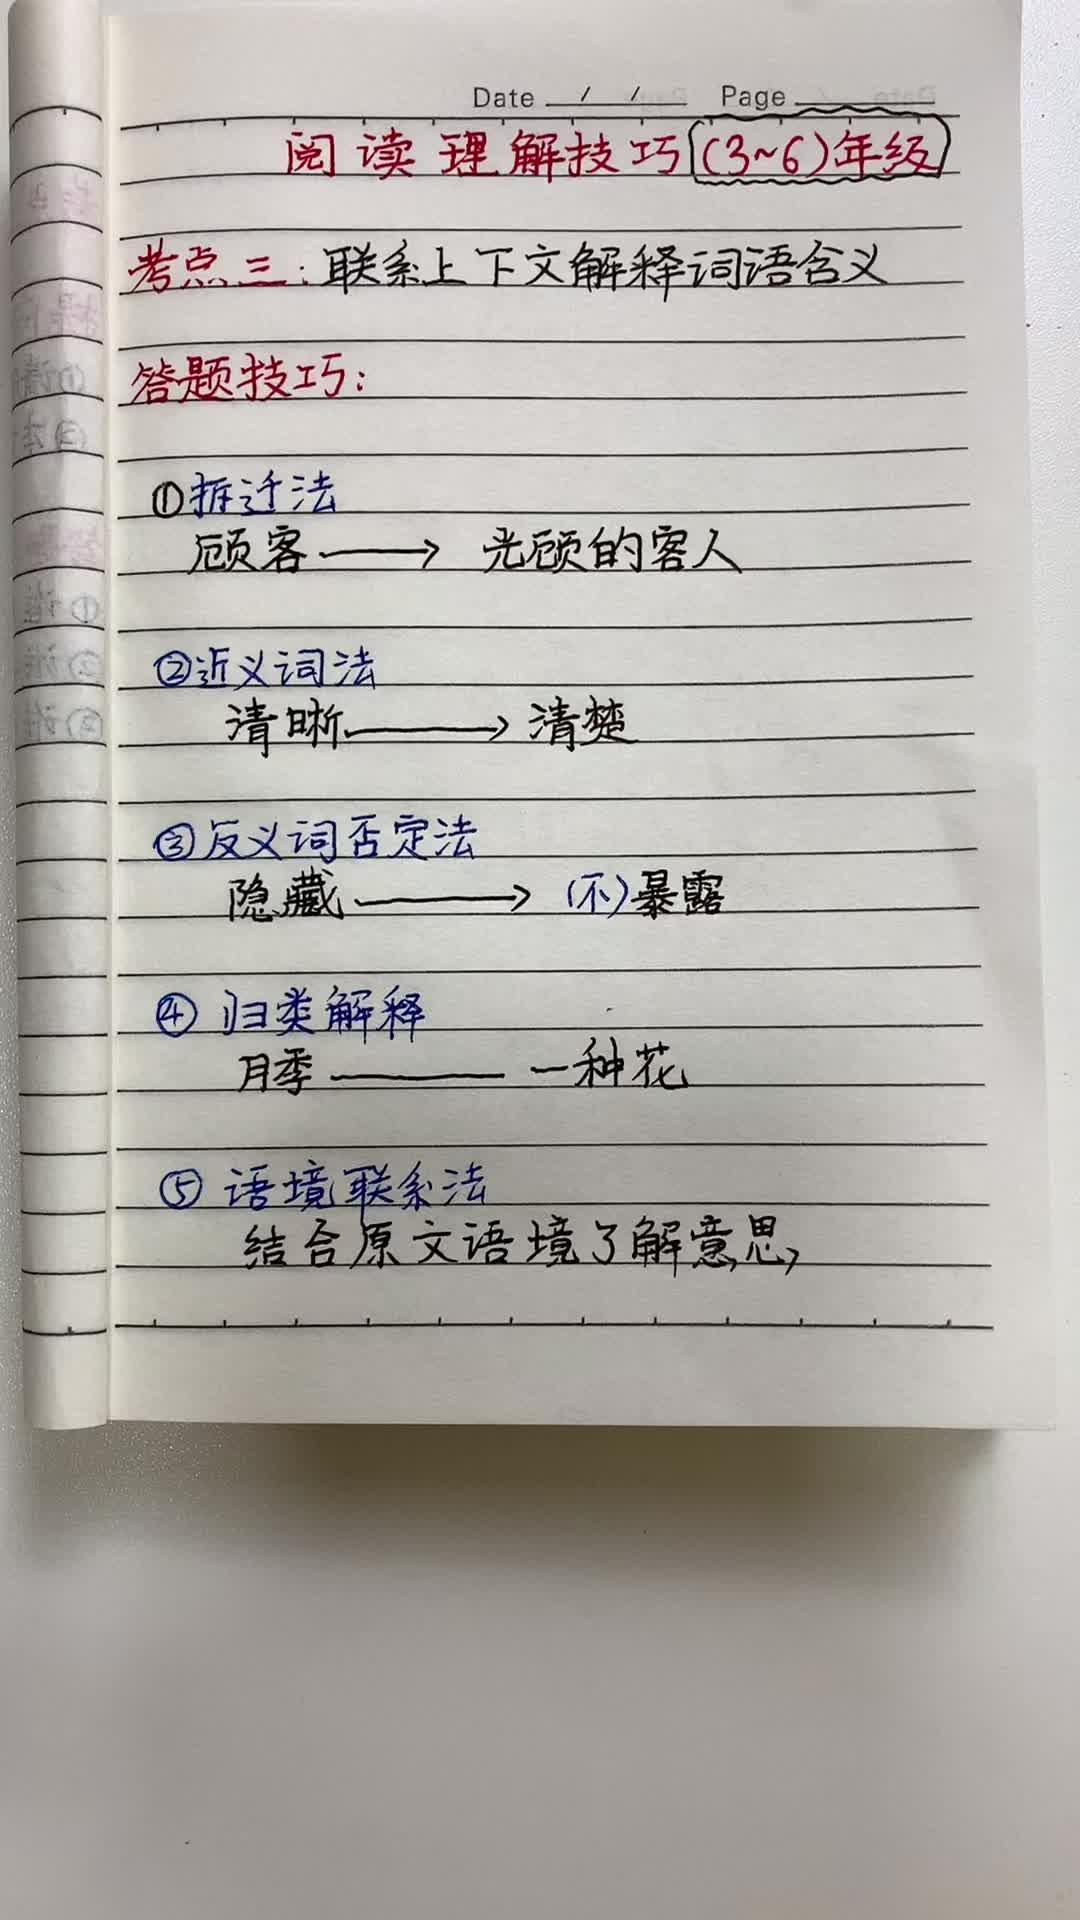 Date / / Page
阅读理解技巧(3~6)年级
考点三:联系上下文解释词语含义
答题技巧:
①拆迁法
顾客→光顾的客人
②近义词法
清晰→清楚
③反义词否定法
隐藏→(不)暴露
④归类解释
月季——一种花
⑤语境联系法
结合原文语境了解意思,